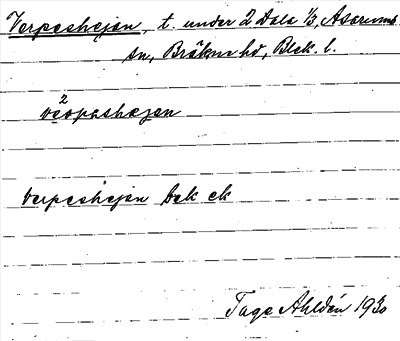 Verpeshejan, t. under 2 Dala 1/3, Asarums
sn, Bräkne hd, Blek. l.
2
værpashæjan
Verpeshejan bok ek
Tage Ahldén 1930